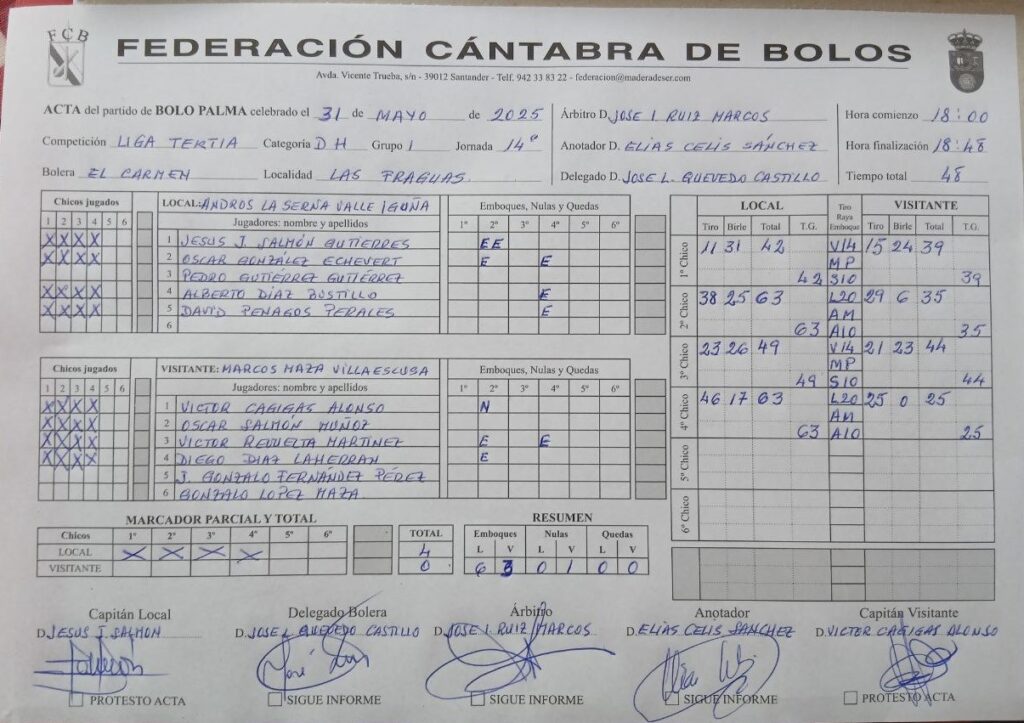 FCB
FEDERACIÓN CÁNTABRA DE BOLOS
Avda. Vicente Trueba, s/n - 39012 Santander - Telf. 942 33 83 22 - federacion@maderadeser.com
ACTA del partido de BOLO PALMA celebrado el 31 de MAYO de 2025
Competición LIGA TERTIA Categoría DH Grupo 1 Jornada 14ª
Bolera EL CARMEN Localidad LAS FRAGUAS
Árbitro D. JOSE I RUIZ MARCOS
Anotador D. ELIAS CELIS SÁNCHEZ
Delegado D. JOSE L. QUEVEDO CASTILLO
Hora comienzo 18:00
Hora finalización 18:48
Tiempo total 48
Chicos jugados LOCAL: ANDROS LA SERNA VALLE IGUÑA Emboques, Nulas y Quedas
1 2 3 4 5 6 Jugadores: nombre y apellidos 1º 2º 3º 4º 5º 6º
X X X X 1 JESUS J. SALMÓN GUTIERRES EE
X X X X 2 OSCAR GONZÁLEZ ECHEVERT E E
3 PEDRO GUTIÉRREZ GUTIÉRREZ
X X X X 4 ALBERTO DÍAZ BUSTILLO E
X X X X 5 DAVID PENAGOS PERALES E
6
Chicos jugados VISITANTE: MARCOS MAZA VILLAESCUSA Emboques, Nulas y Quedas
1 2 3 4 5 6 Jugadores: nombre y apellidos 1º 2º 3º 4º 5º 6º
X X X X 1 VICTOR CAGIGAS ALONSO N
X X X X 2 OSCAR SALMÓN MUÑOZ
X X X X 3 VICTOR REVUELTA MARTÍNEZ E E
X X X X 4 DIEGO DIAZ LAHERRAN E
5 J. GONZALO FERNÁNDEZ PÉREZ
6 GONZALO LOPEZ MAZA
LOCAL Tiro Raya Emboque VISITANTE
Tiro Birle Total T.G. Tiro Birle Total T.G.
1º Chico 11 31 42 V14 15 24 39
MP
42 S10 39
2º Chico 38 25 63 L20 29 6 35
AM
63 A10 35
3º Chico 23 26 49 V14 21 23 44
MP
49 S10 44
4º Chico 46 17 63 L20 25 0 25
AM
63 A10 25
5º Chico
6º Chico
MARCADOR PARCIAL Y TOTAL
Chicos 1º 2º 3º 4º 5º 6º TOTAL
LOCAL X X X X 4
VISITANTE 0
RESUMEN
Emboques Nulas Quedas
L V L V L V
6 3 0 1 0 0
Capitán Local Delegado Bolera Árbitro Anotador Capitán Visitante
D. JESUS J. SALMON D. JOSE L QUEVEDO CASTILLO D. JOSE I. RUIZ MARCOS D. ELÍAS CELIS SANCHEZ D. VICTOR CAGIGAS ALONSO
PROTESTO ACTA SIGUE INFORME SIGUE INFORME SIGUE INFORME PROTESTO ACTA